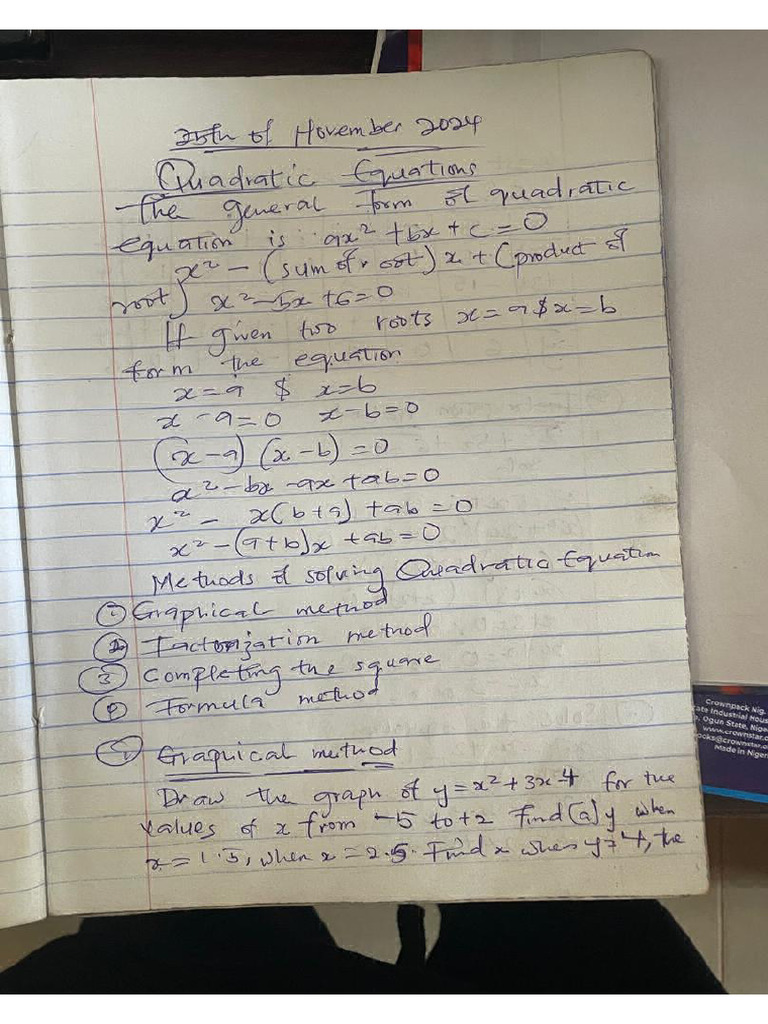 25th of November 2024
Quadratic Equations
The general form of quadratic
equation is ax² + bx + c = 0
x² - (sum of root) x + (product of
root) x² - 5x + 6 = 0
If given two roots x = a $ x = b
form the equation
x = a $ x = b
x - a = 0 x - b = 0
(x - a) (x - b) = 0
x² - bx - ax + ab = 0
x² - x(b + a) + ab = 0
x² - (a + b)x + ab = 0
Methods of solving Quadratic Equation
Graphical method
Factorization method
3 Completing the square
Formula method
Graphical method
Draw the graph of y = x² + 3x 4 for the
values of x from -5 to +2 Find (a) y when
x = 1.5, when x = 2.5. Find x when y = 4, the
Crownpack Nig.
ate Industrial Hous
, Ogun State, Nige
www.crownstar.c
ocks@crownstar.c
Made in Niger